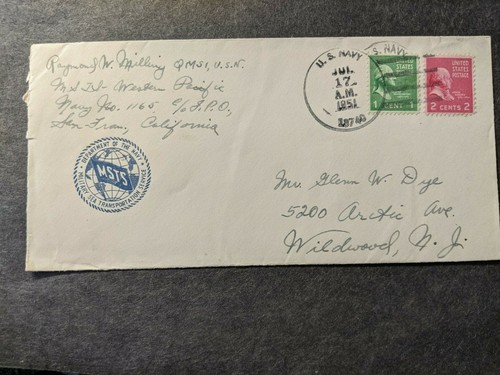 Raymond W. Milling QMS1, U.S.N.
Western Pacific
Navy No. 1165 c/o F.P.O.
San Fran, California
U.S. NAVY
JUL
17
A.M.
1951
S. NAVY
UNITED STATES POSTAGE
1 CENT 1
UNITED STATES POSTAGE
2 CENTS 2
DEPARTMENT OF THE NAVY
MSTS
MILITARY SEA TRANSPORTATION SERVICE
Mr. Glenn W. Dye
5200 Arctic Ave.
Wildwood, N. J.